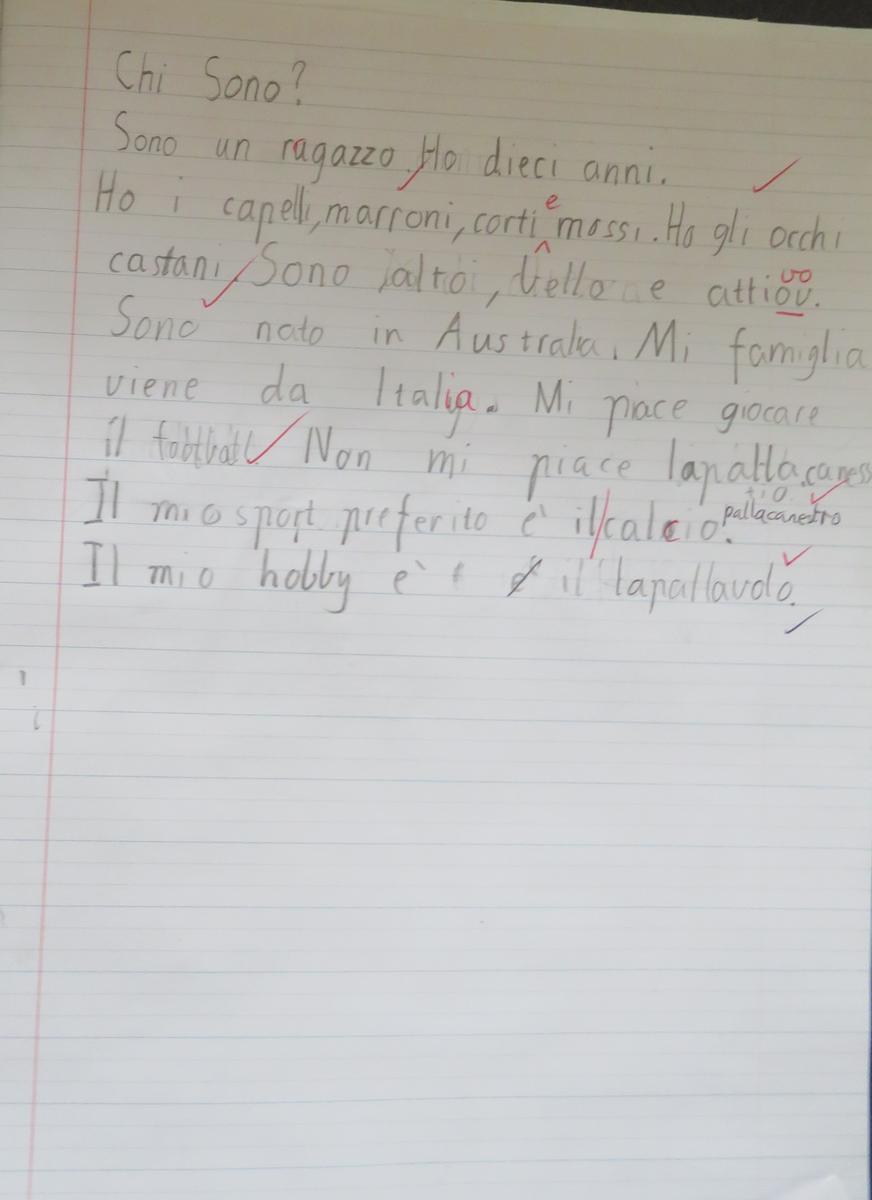 Chi Sono?
Sono un ragazzo. Ho dieci anni.
Ho i capelli, marroni, corti e mossi. Ho gli occhi
castani. Sono alto, bello e attiov. vo
Sono nato in Australia. Mi famiglia
viene da Italia. Mi piace giocare
il football. Non mi piace lapallacaness
tro.
Il mio sport preferito e' il/calcio. pallacanestro
Il mio hobby e' il lapallavolo.